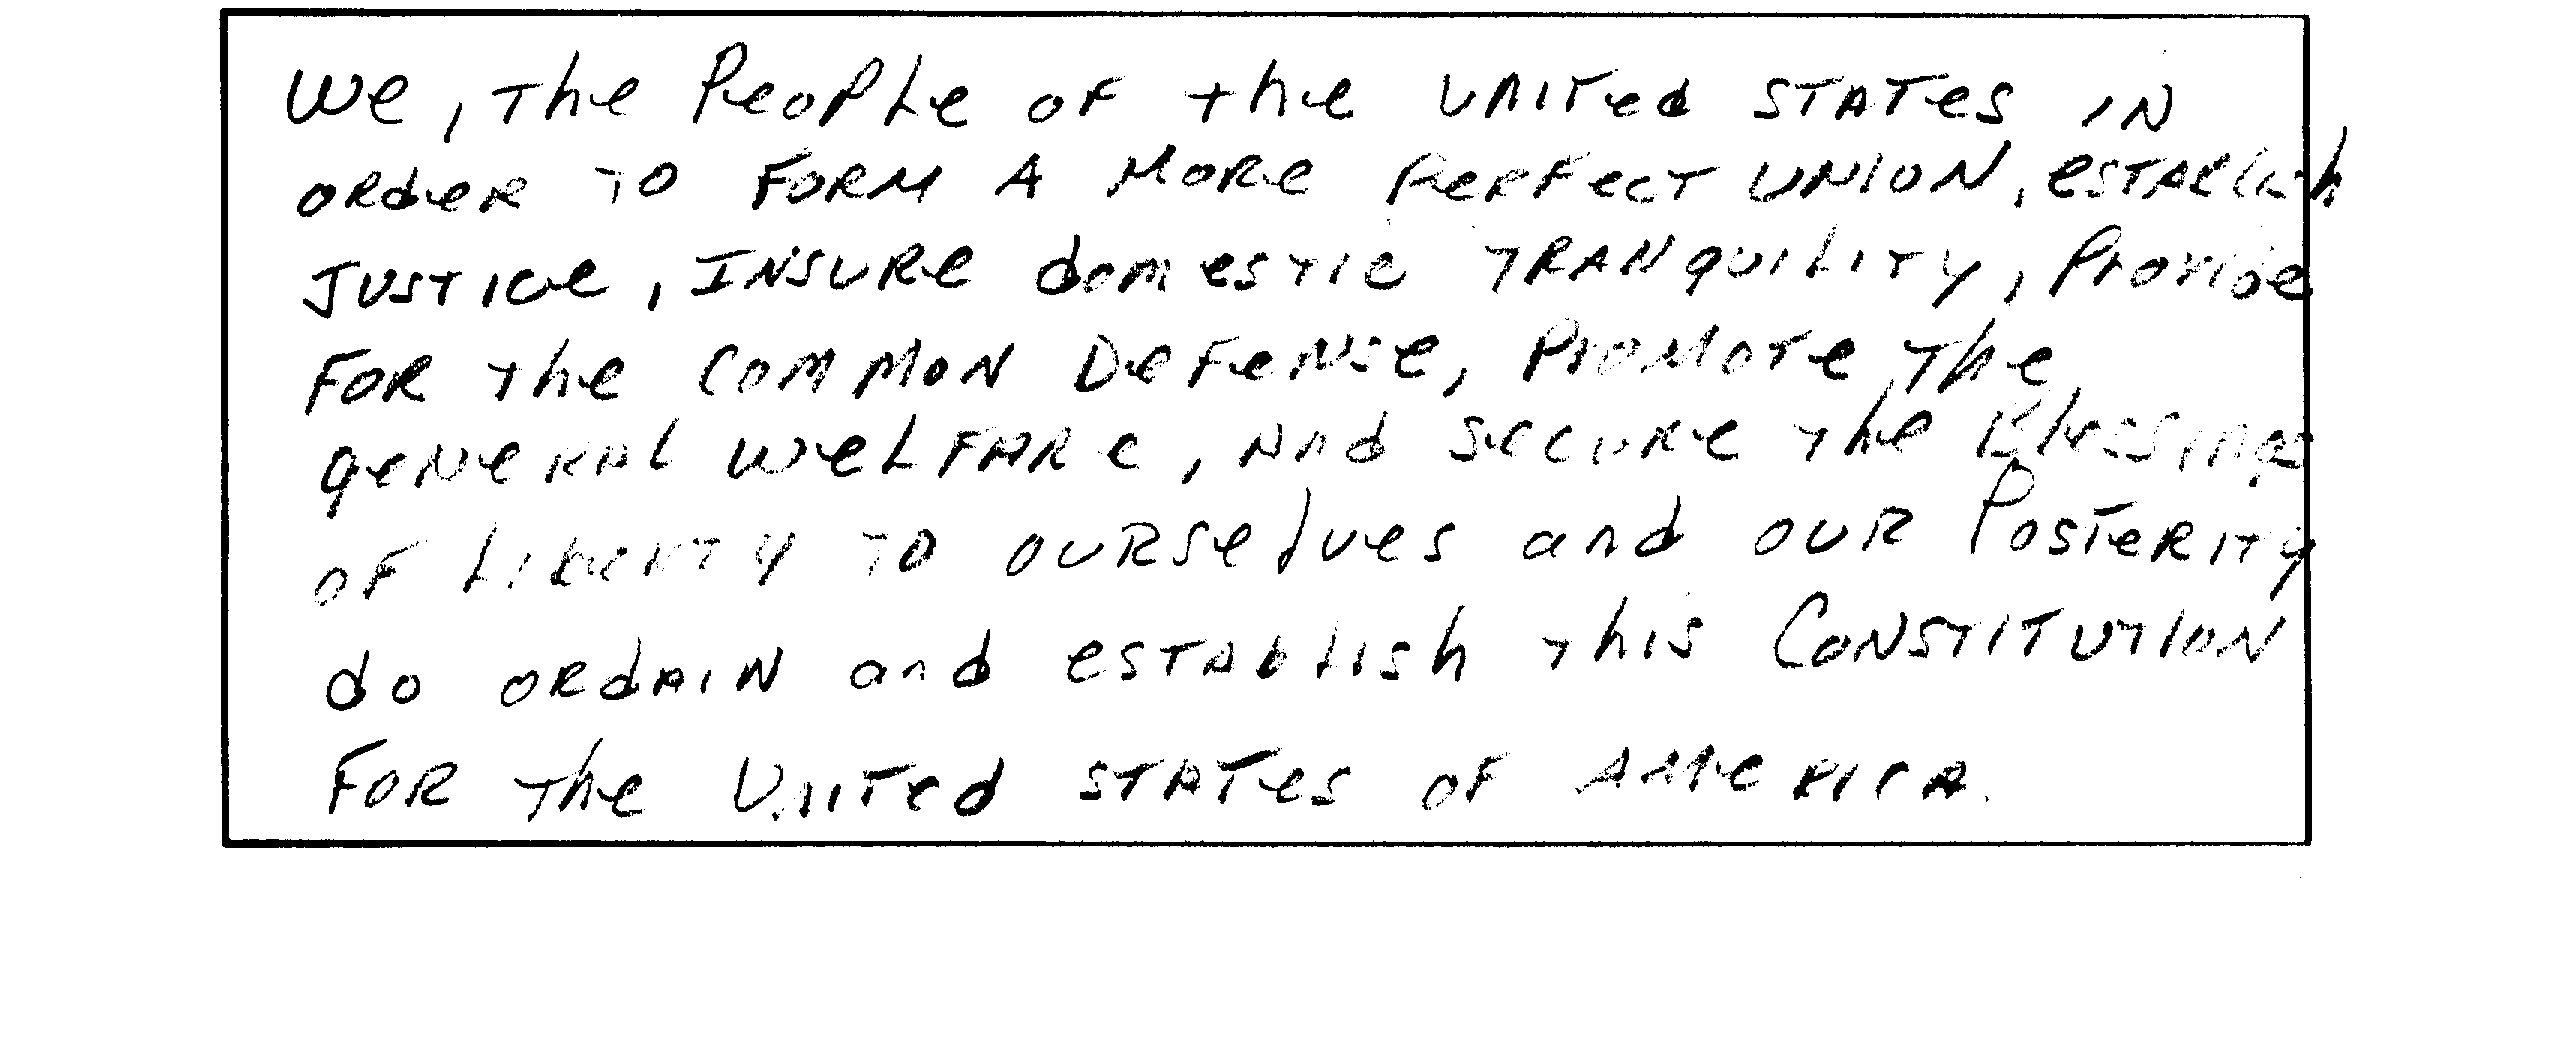 We, The People of the United States in
order to form a more perfect union, establish
justice, insure domestic tranquility, provide
for the common defense, promote the
general welfare, and secure the blessings
of liberty to ourselves and our Posterity
do ordain and establish this Constitution
for the United States of America.